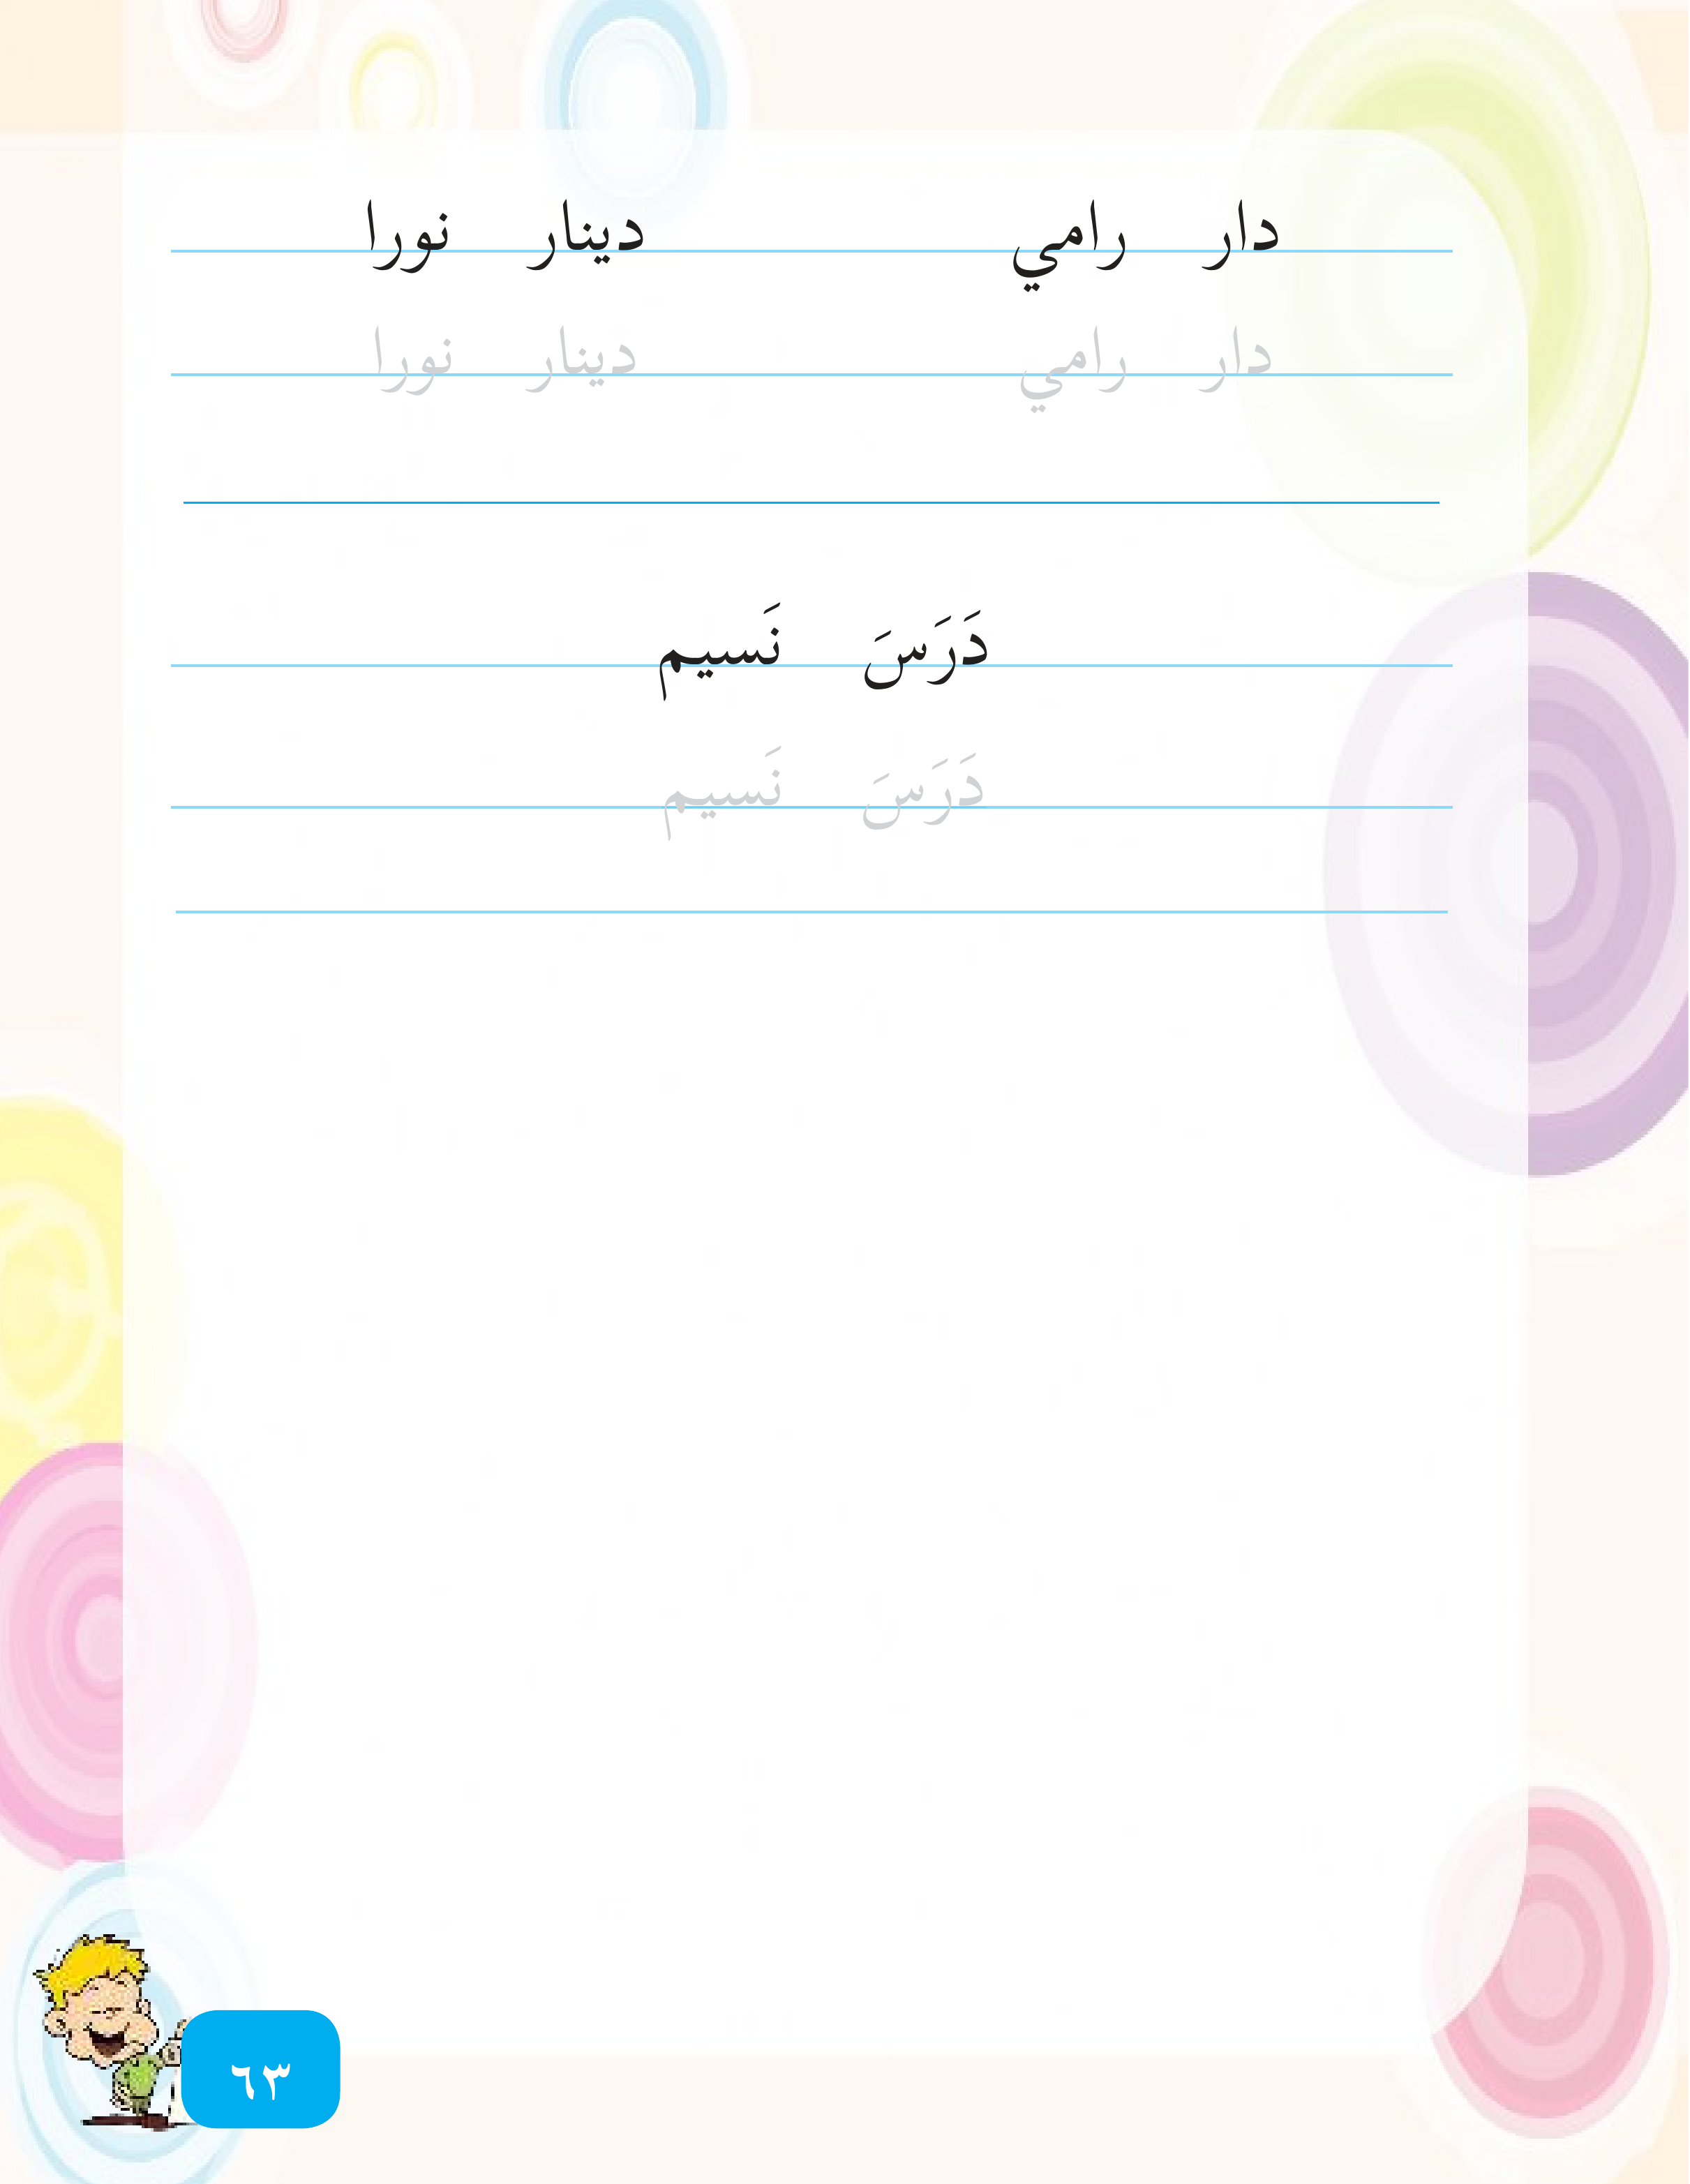 دار رامي دينار نورا
دار رامي دينار نورا
دَرَسَ نَسيم
دَرَسَ نَسيم
٦٣